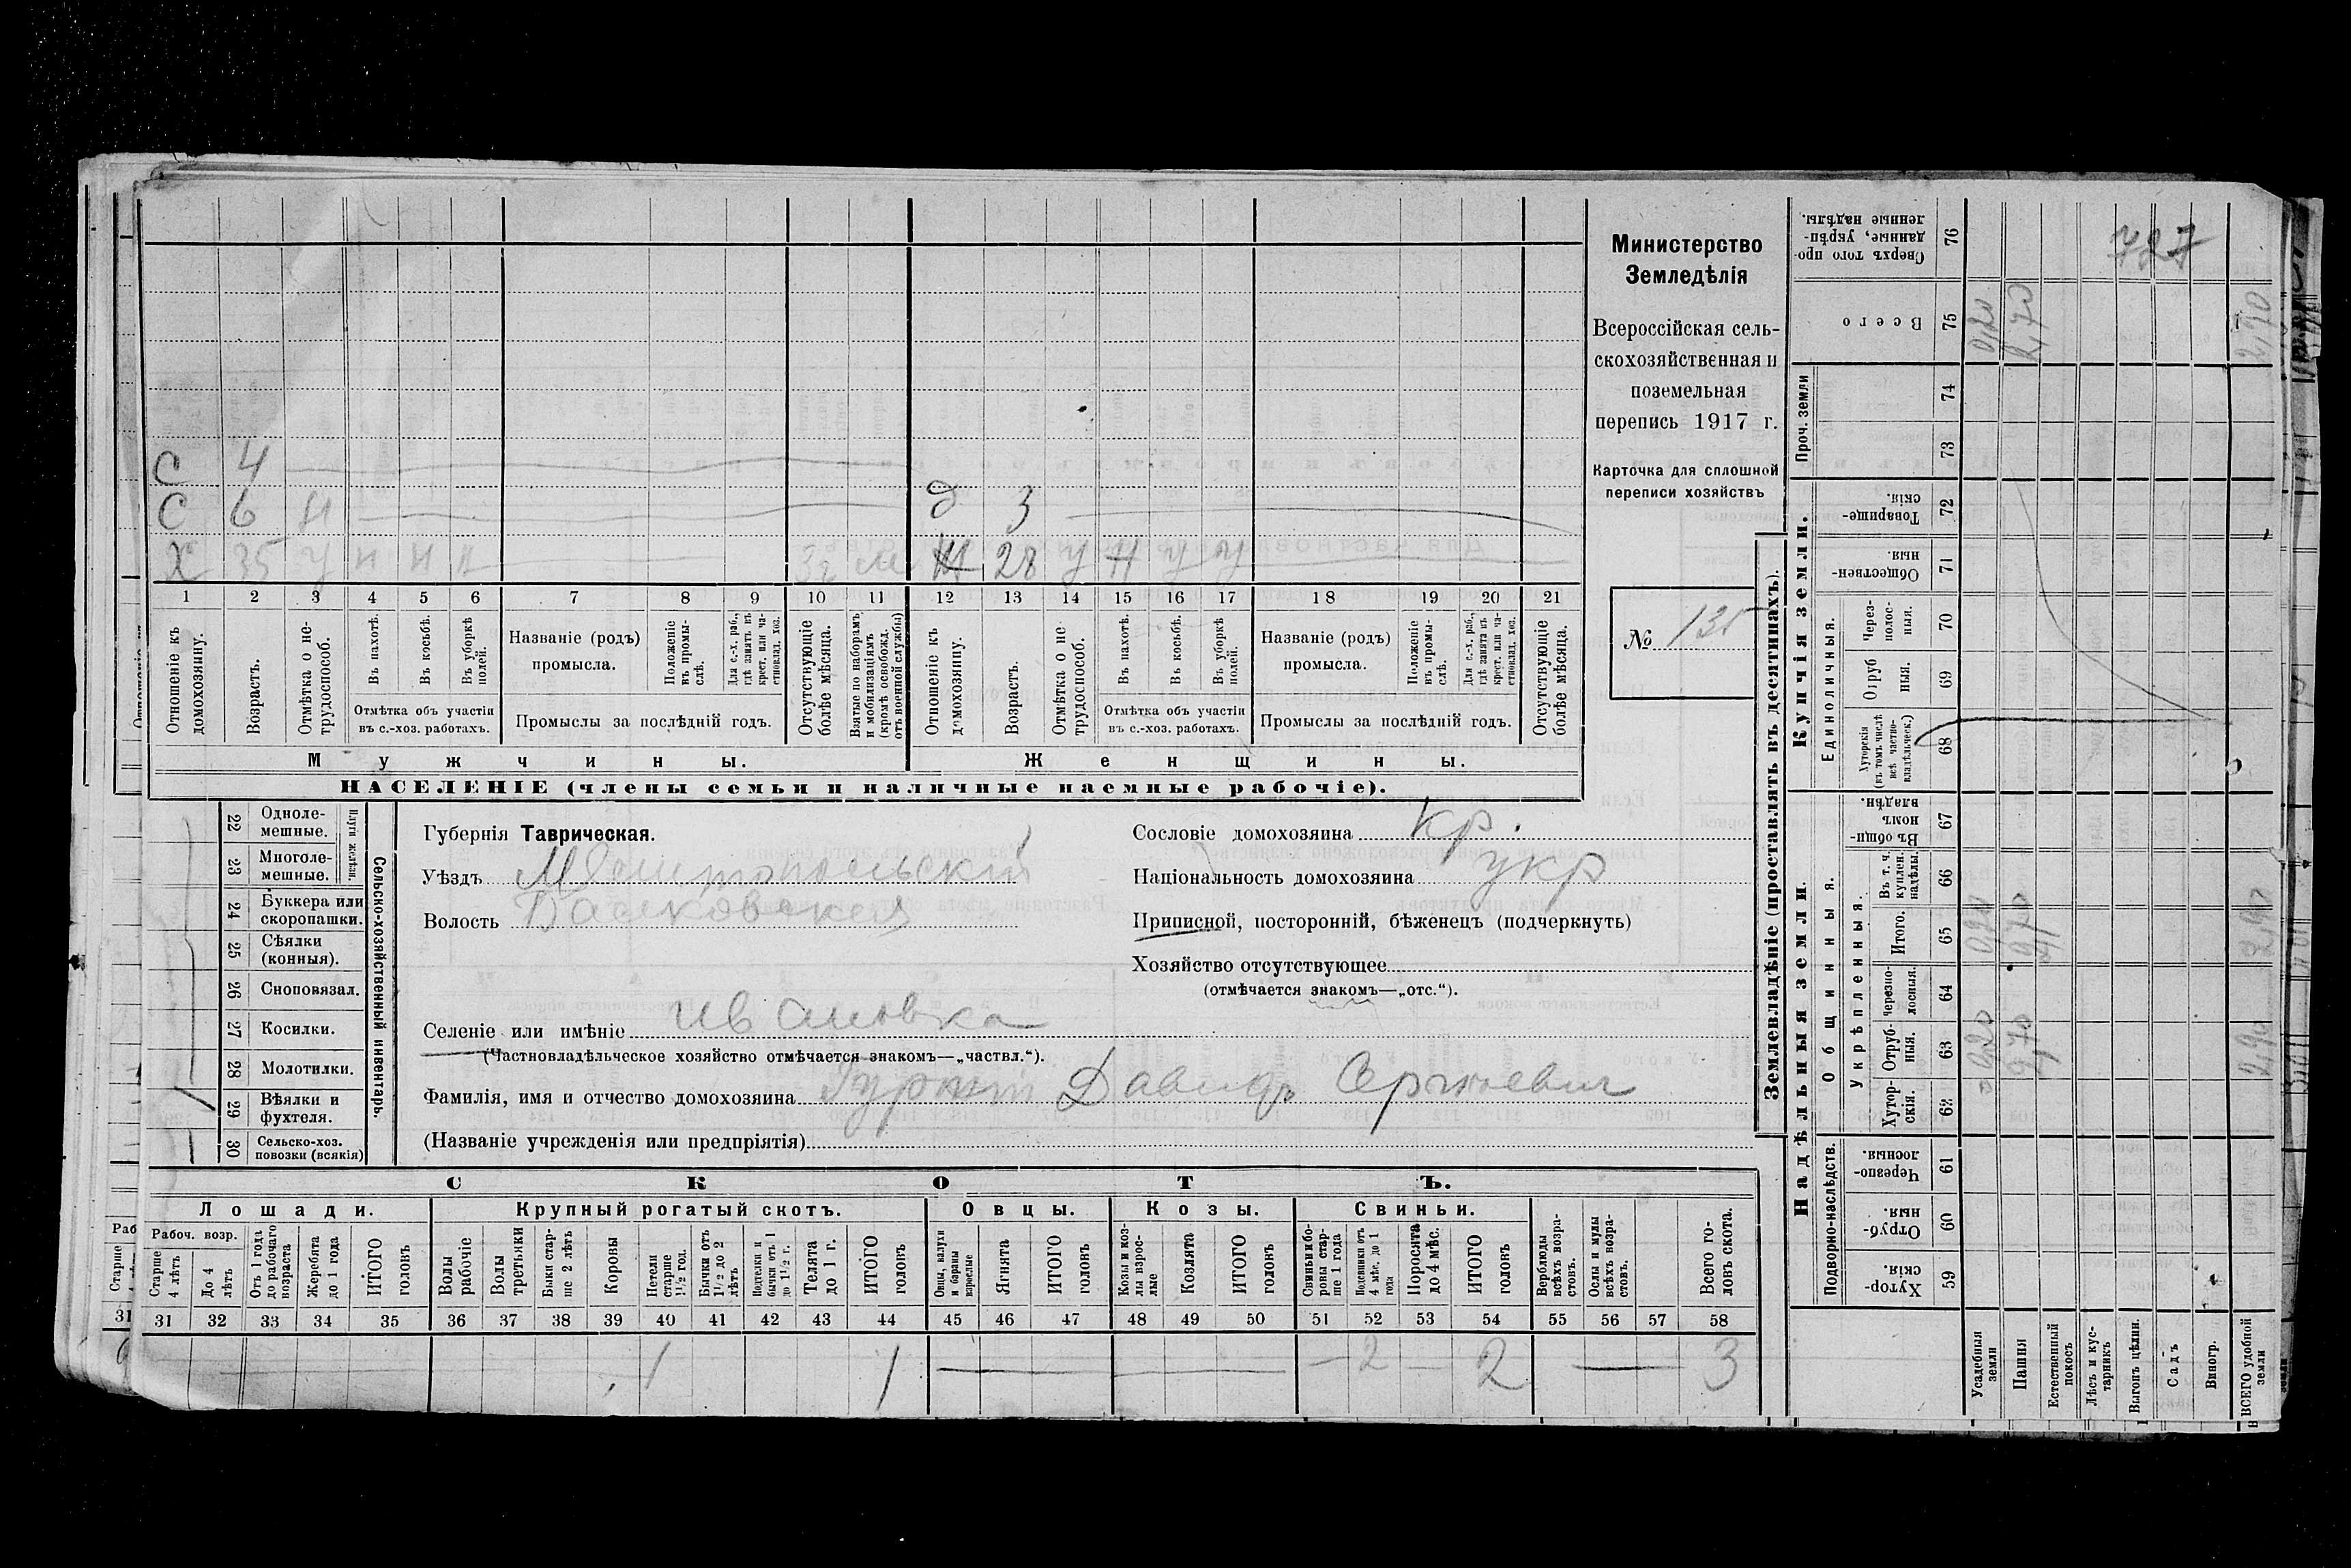 С 4
С 6 н д 3
Х 35 у н н н м Ж 28 у н у у
1 2 3 4 5 6 7 8 9 10 11 12 13 14 15 16 17 18 19 20 21
Отношеніе къ домохозяину.
Возрастъ.
Отмѣтка о не-
трудоспособ.
Въ пахотѣ.
Въ косьбѣ.
Въ уборкѣ
полей.
Отмѣтка объ участіи
въ с.-хоз. работахъ.
Названіе (родъ)
промысла.
Положеніе
въ промы-
слѣ.
Для с.-х. раб.,
гдѣ занятъ въ
крест. или ча-
стновлад. хоз.
Промыслы за послѣдній годъ.
Отсутствующіе
болѣе мѣсяца.
Взятые по наборамъ
и мобилизаціямъ
(кромѣ освобожд.
отъ военной службы)
Отношеніе къ
домохозяину.
Возрастъ.
Отмѣтка о не
трудоспособ.
Въ пахотѣ.
Въ косьбѣ.
Въ уборкѣ
полей.
Отмѣтка объ участіи
въ с.-хоз. работахъ.
Названіе (родъ)
промысла.
Положеніе
въ промы-
слѣ.
Для с.-х. раб.,
гдѣ занятъ въ
крест. или ча-
стновлад. хоз.
Промыслы за послѣдній годъ.
Отсутствующіе
болѣе мѣсяца.
Мужчины. Женщины.
НАСЕЛЕНІЕ (члены семьи и наличные наемные рабочіе).
Министерство
Земледѣлія
Всероссійская сель-
скохозяйственная и
поземельная
перепись 1917 г.
Карточка для сплошной
переписи хозяйствъ
№ 135
22 Одноле-
мешные.
23 Многоле-
мешные.
Плуги желѣзн.
24 Буккера или
скоропашки.
25 Сѣялки
(конныя).
26 Сноповязал.
27 Косилки.
28 Молотилки.
29 Вѣялки и
фухтеля.
30 Сельско-хоз.
повозки (всякія)
Сельско-хозяйственный инвентарь.
Губернія Таврическая.
Уѣздъ Мелитопольскій
Волость
Селеніе или имѣніе Ивановка
(Частновладѣльческое хозяйство отмѣчается знакомъ—„частвл.“).
Фамилія, имя и отчество домохозяина Давидъ Сергѣевич
(Названіе учрежденія или предпріятія)
Сословіе домохозяина кр.
Національность домохозяина укр
Приписной, посторонній, бѣженецъ (подчеркнуть)
Хозяйство отсутствующее
(отмѣчается знакомъ—„отс.“).
СКОТЪ.
Лошади. Крупный рогатый скотъ. Овцы. Козы. Свиньи.
Рабоч. возр.
Старше
4 лѣтъ
До 4
лѣтъ
Отъ 1 года
до рабочаго
возраста
Жеребята
до 1 года
ИТОГО
головъ
Волы
рабочіе
Волы
третьяки
Быки стар-
ше 2 лѣтъ
Коровы
Нетели
старше
1½ год.
Бычки отъ
1½ до 2
лѣтъ
Подтелки и
бычки отъ 1
до 1½ г.
Телята
до 1 г.
ИТОГО
головъ
Овцы, валухи
и бараны
взрослые
Ягнята
ИТОГО
головъ
Козы и коз-
лы взрос-
лые
Козлята
ИТОГО
головъ
Свиньи и бо-
ровы стар-
ше 1 года
Подсвинки отъ
4 мѣс. до 1
года
Поросята
до 4 мѣс.
ИТОГО
головъ
Верблюды
всѣхъ возра-
стовъ.
Ослы и мулы
всѣхъ возра-
стовъ.
Всего го-
ловъ скота.
31 32 33 34 35 36 37 38 39 40 41 42 43 44 45 46 47 48 49 50 51 52 53 54 55 56 57 58
1 1 — — — 2 — 2 — 3
Землевладѣніе (проставлять въ десятинахъ).
Купчія земли.
Надѣльныя земли.
Сверхъ того про-
данные, укрѣп-
ленные надѣлы. 76
727
Всего 75 0,20 2,70 2,90
Проч. земли 74
73
Товарище-
скій. 72
Обществен-
ныя. 71
Единоличныя.
Через-
полос-
ныя. 70
Отруб
ныя. 69
Хуторскія
(въ томъ числѣ
всѣ частно-
владѣльческ.) 68
Общинныя.
Въ общи-
номъ
владѣн. 67
Укрѣпленныя.
Въ т. ч.
куплен.
надѣлы. 66
Итого. 65 0,20 2,70 2,90
Черезпо-
лосныя. 64
Отруб-
ныя. 63 0,20 2,70 2,90
Хутор-
скія. 62
Подворно-наслѣдств.
Черезпо-
лосныя. 61
Отруб-
ныя. 60
Хутор-
скія. 59
Усадебныя
земли
Пашня
Естественный
покосъ
Лѣсъ и кус-
тарникъ
Выгонъ цѣлин.
Садъ
Виногр.
ВСЕГО удобной
земли